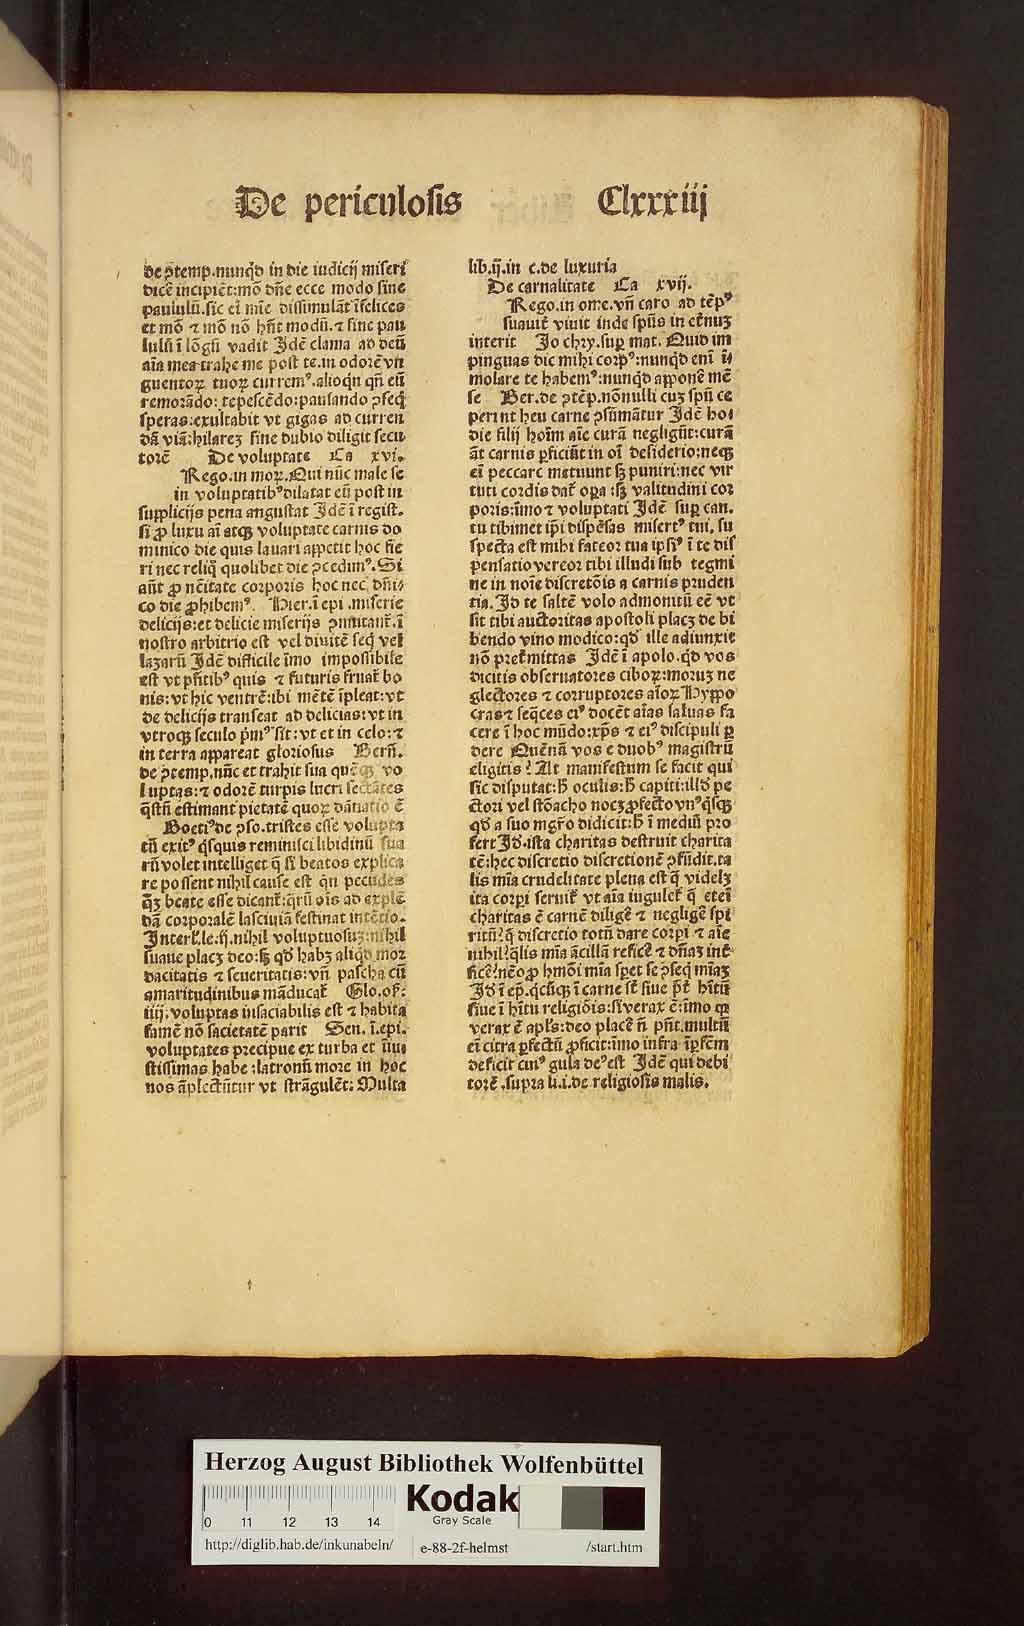 De periculosis Clxxxiij
de ꝯtemp.nunqd in die iudicij miseri
dicē incipiēt:mō dñe ecce modo sine
paululū.sic ei mie dissimulāt īfelices
et mō ⁊ mō nō hñt modū.⁊ sine pau
lulū ī lōgū vadit Idē clama ad deū
aīa mea trahe me post te.in odorē vn
guentoꝝ tuoꝝ curremꝰ.alioqn qn eū
remorādo: tepescēdo:pausando ꝯseq
speras:exultabit vt gigas ad curren
dā viā:hilareꝫ sine dubio diligit secu
torē De voluptate Ca xvi.
Rego.in moꝝ.Qui nūc male se
in voluptatibꝰ dilatat eū post in
supplicijs pena angustat Idē ī regist.
si ꝓ luxu aī atqꝫ voluptate carnis do
minico die quis lauari appetit hoc fie
ri nec reliq̄ quolibet die ꝯcedimꝰ.Si
aūt ꝓ nēitate corporis hoc nec dñi⸗
co die ꝓhibemꝰ. Hier.ī epi .miserie
delicijs:et delicie miserijs ꝯmutant̄.ī
nostro arbitrio est vel diuitē seq̄ vel
lazarū Idē difficile īmo impossibile
est vt pñtibꝰ quis ⁊ futuris fruat̄ bo
nis:vt hic ventrē:ibi mētē īpleat:vt
de delicijs transeat ad delicias:vt in
vtroqꝫ seculo pͥmꝰ sit:vt et in celo:⁊
in terra appareat gloriosus Berñ.
de ꝯtemp.nūc et trahit sua quēqꝫ vo
luptas:⁊ odorē turpis lucri sectātes
q̄stū estimant pietatē quoꝝ dānatio ē
Boetiꝰ de ꝯso.tristes esse volupta
tū exitꝰ q̄squis reminisci libidinū sua
rū volet intelliget q̄ si beatos explica
re possent nihil cause est qn pecudes
q̄ꝫ beate esse dicant̄:q̄rū oīs ad explē
dā corporalē lasciuiā festinat intētio.
Interl̄.le.ij.nihil voluptuosuꝫ:nihil
suaue placꝫ deo:sꝫ qd habꝫ aliqd mor
dacitatis ⁊ seueritatis:vñ pascha cū
amaritudinibus māducat̄ Glo.of:
iiij.voluptas insaciabilis est ⁊ habita
famē nō sacietatē parit Sen. ī.epi.
voluptates precipue ex turba et īui
stissimas habe :latronū more in hoc
nos āplectūtur vt strāgulēt: Multa
lib.ij.in c.de luxuria
De carnalitate Ca xvij.
Rego.in ome.vñ caro ad tēpꝰ
suauiē viuit inde spūs in et̄nuꝫ
interit Jo chry.sup mat. Quid im
pinguas dic mihi corpꝰ:nunqd enī ī⸗
molare te habemꝰ:nunqd apponē mē
se Ber.de ꝯtēp.nōnulli cuꝫ spū ce
perint heu carne ꝯsūmātur Idē ho⸗
die filij hoīm aīe curā negligūt:curā
āt carnis ꝑficiūt in oī desiderio:neqꝫ
eī peccare metuunt sꝫ puniri:nec vir
tuti cordis dat̄ oꝑa :sꝫ valitudini cor
poris:īmo ⁊ voluptati Idē sup can.
tu tibimet ipī dispēsas misertꝰ tui, su
specta est mihi fateor tua ipsiꝰ ī te dis
pensatio vereor tibi illudi sub tegmi
ne in noīe discretōis a carnis pruden
tia. Id te saltē volo admonitū eē vt
sit tibi auctoritas apostoli placꝫ de bi
bendo vino modico:qd ille adiunxit
nō pret̄mittas Idē ī apolo.qd vos
dicitis obseruatores ciboꝝ:moruꝫ ne
glectores ⁊ corruptores aīoꝝ Hyppo
cras⁊ seq̄ces eiꝰ docēt aīas saluas fa
cere ī hoc mūdo:xp̄s ⁊ eiꝰ discipuli ꝑ
dere Quēnā vos e duobꝰ magistrū
eligitis? At manifestum se facit qui
sic disputat:h̄ oculis:h̄ capiti:illd pe
ctori vel stōacho nocꝫ ꝓfecto vnꝰ q̄sqꝫ
qd a suo mgr̄o didicit:h̄ ī mediū pro
fert Id.ista charitas destruit charita
tē:hec discretio discretionē ꝯfūdit.ta
lis mīa crudelitate plena est q̄ videlꝫ
ita corpi seruit̄ vt aīa iugulet̄ q̄ eteī
charitas ē carnē diligē ⁊ negligē spī
ritū?q̄ discretio totū dare corpi ⁊ aīe
nihil?q̄lis mīa ācillā reficē ⁊ dñaꝫ int̄
ficē?nēo ꝓ hmōi mīa sꝑet se ꝯseq mīaꝫ
Id ī ep.q̄cūqꝫ ī carne st̄ siue ꝑt̄ hītū
siue ī hītu religiōis:si verax ē:īmo qꝛ
verax ē apl's:deo placē ñ pñt.multū
eī citra ꝑfectū ꝓficit:īmo infra īꝑfēm
deficit cuiꝰ gula deꝰ est Idē qui debi
torē .supra li.i.de religiosis malis.
Herzog August Bibliothek Wolfenbüttel
0 11 12 13 14
Kodak
Gray Scale
http://diglib.hab.de/inkunabeln/ e-88-2f-helmst /start.htm